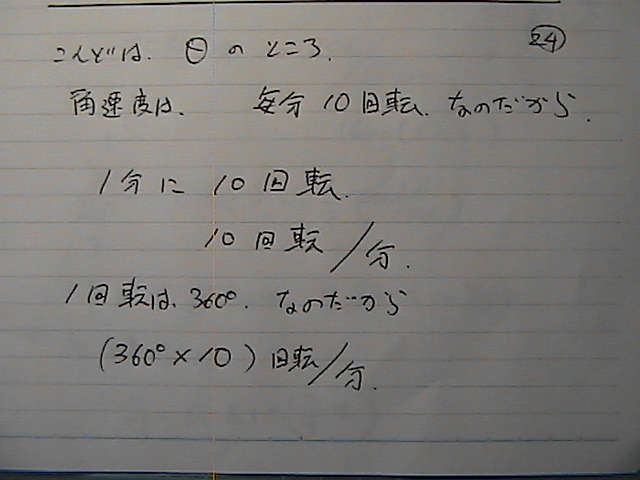 こんどは、θのところ、 24
角速度は、 毎分10回転、なのだから、
1分に10回転、
10回転/分、
1回転は、360°、なのだから
(360°×10)回転/分、